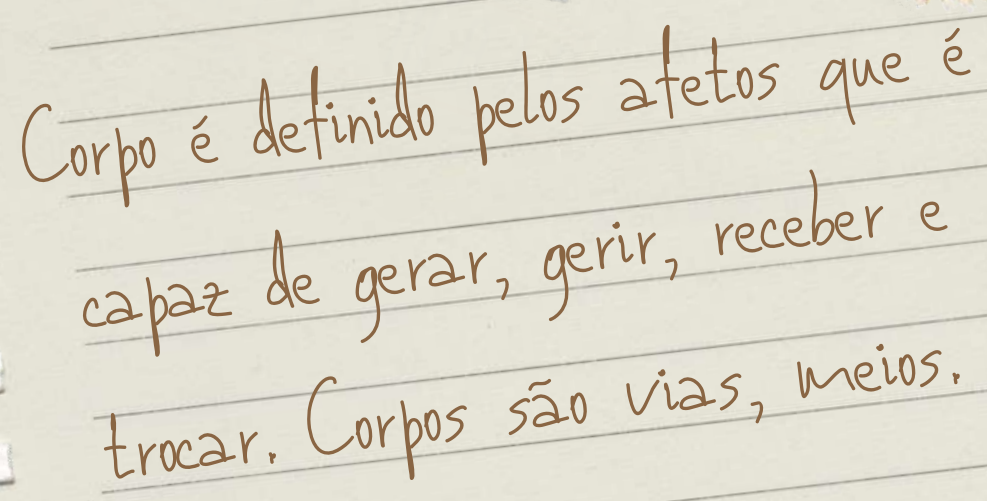 Corpo é definido pelos afetos que é
capaz de gerar, gerir, receber e
trocar. Corpos são vias, meios.